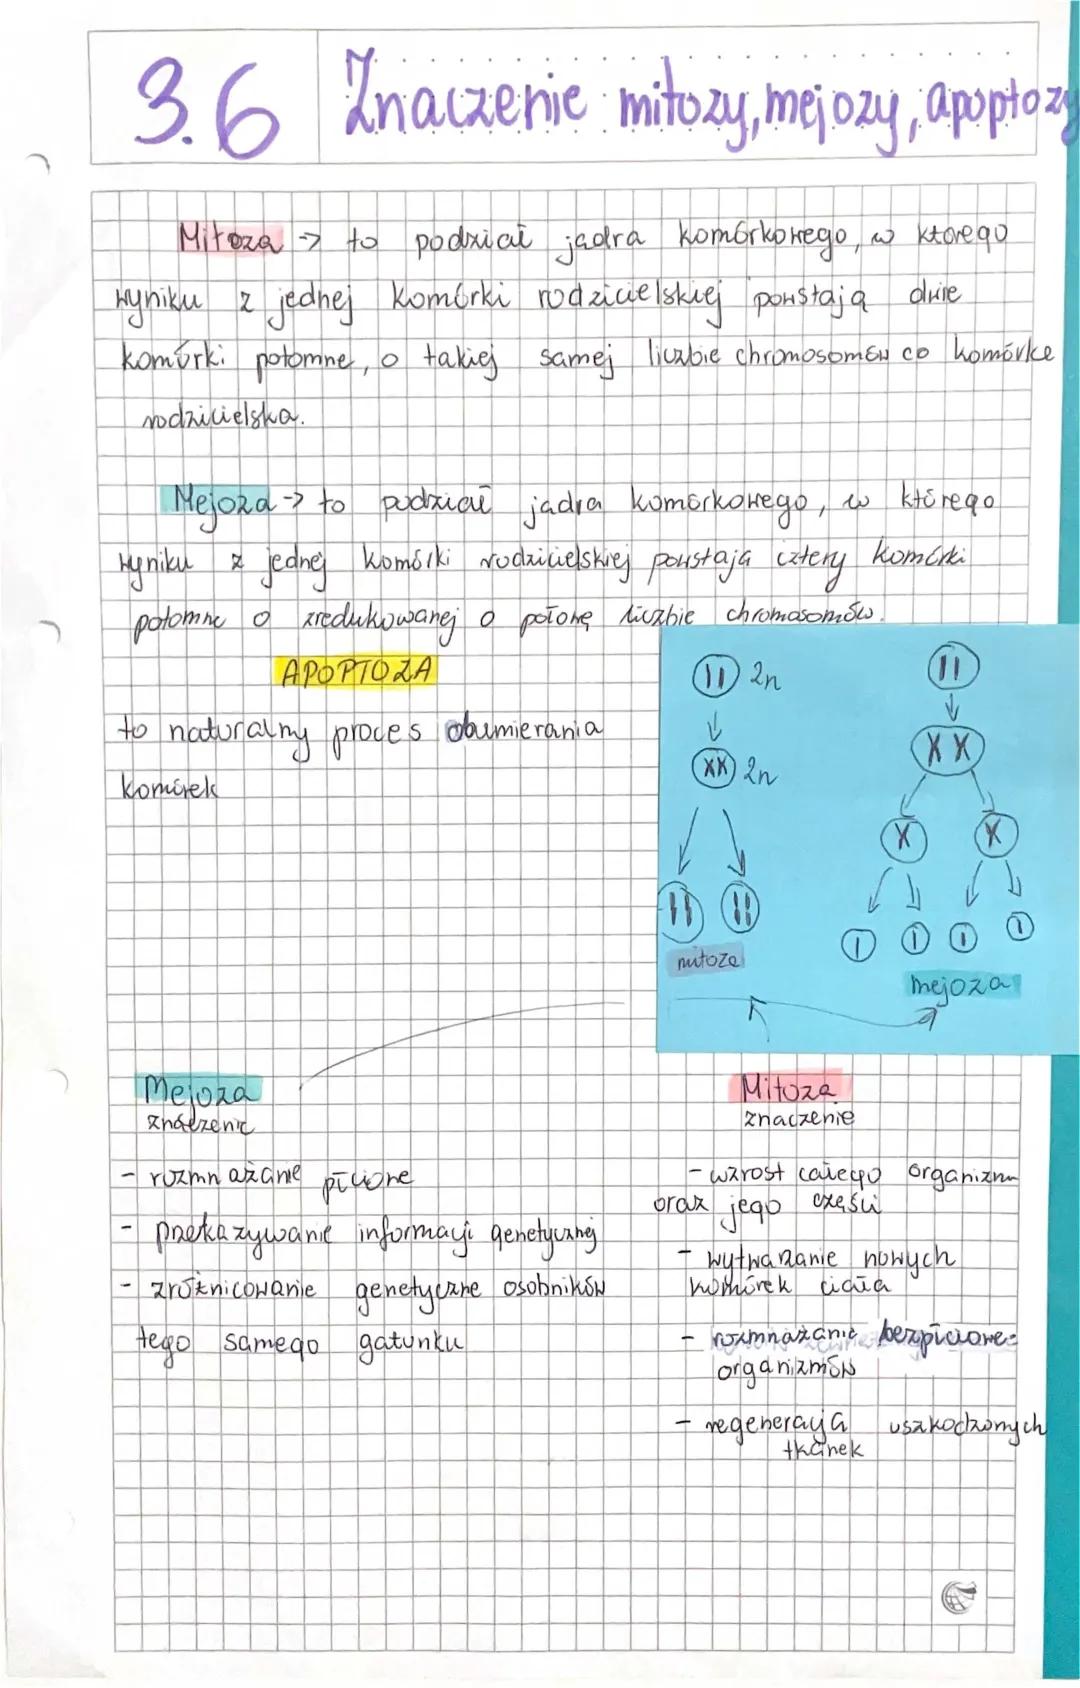 3.6 Znaczenie mitozy, mejozy, apoptozy
Mitoza -> to podział jądra komórkowego, w którego
wyniku z jednej komórki rodzicielskiej powstają dwie
komórki potomne, o takiej samej liczbie chromosomów co komórke
rodzicielska.
Mejoza -> to podział jądra komórkowego, w którego
wyniku z jednej komórki rodzicielskiej powstają cztery komórki
potomne o zredukowanej o połowę liczbie chromosomów.
APOPTOZA
to naturalny proces obumierania
komórek
2n
2n
mitoza
mejoza
Mejoza
znaczenie
- rozmnażanie płciowe
- przekazywanie informacji genetycznej
- zróżnicowanie genetyczne osobników
tego samego gatunku
Mitoza
znaczenie
- wzrost całego organizmu
oraz jego części
- wytwarzanie nowych
komórek ciała
- rozmnażanie bezpłciowe
organizmów
- regeneracja uszkodzonych
tkanek